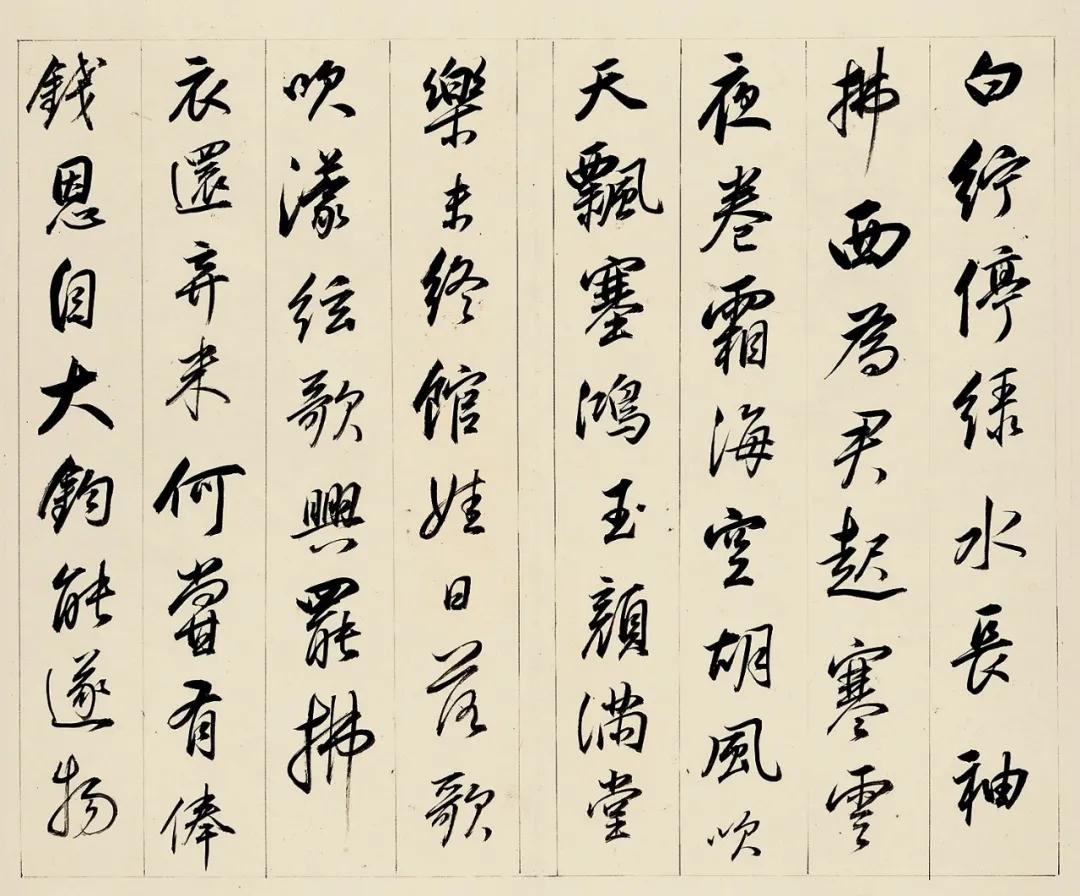 白紵停緑水長袖
拂西為君起寒雲
夜卷霜海空胡風吹
天飄塞鴻玉顏滿堂
樂未終館娃日落歌
吹濛絃歌興罷拂
衣還弃来何嘗有俸
錢恩自大鈞能遂物